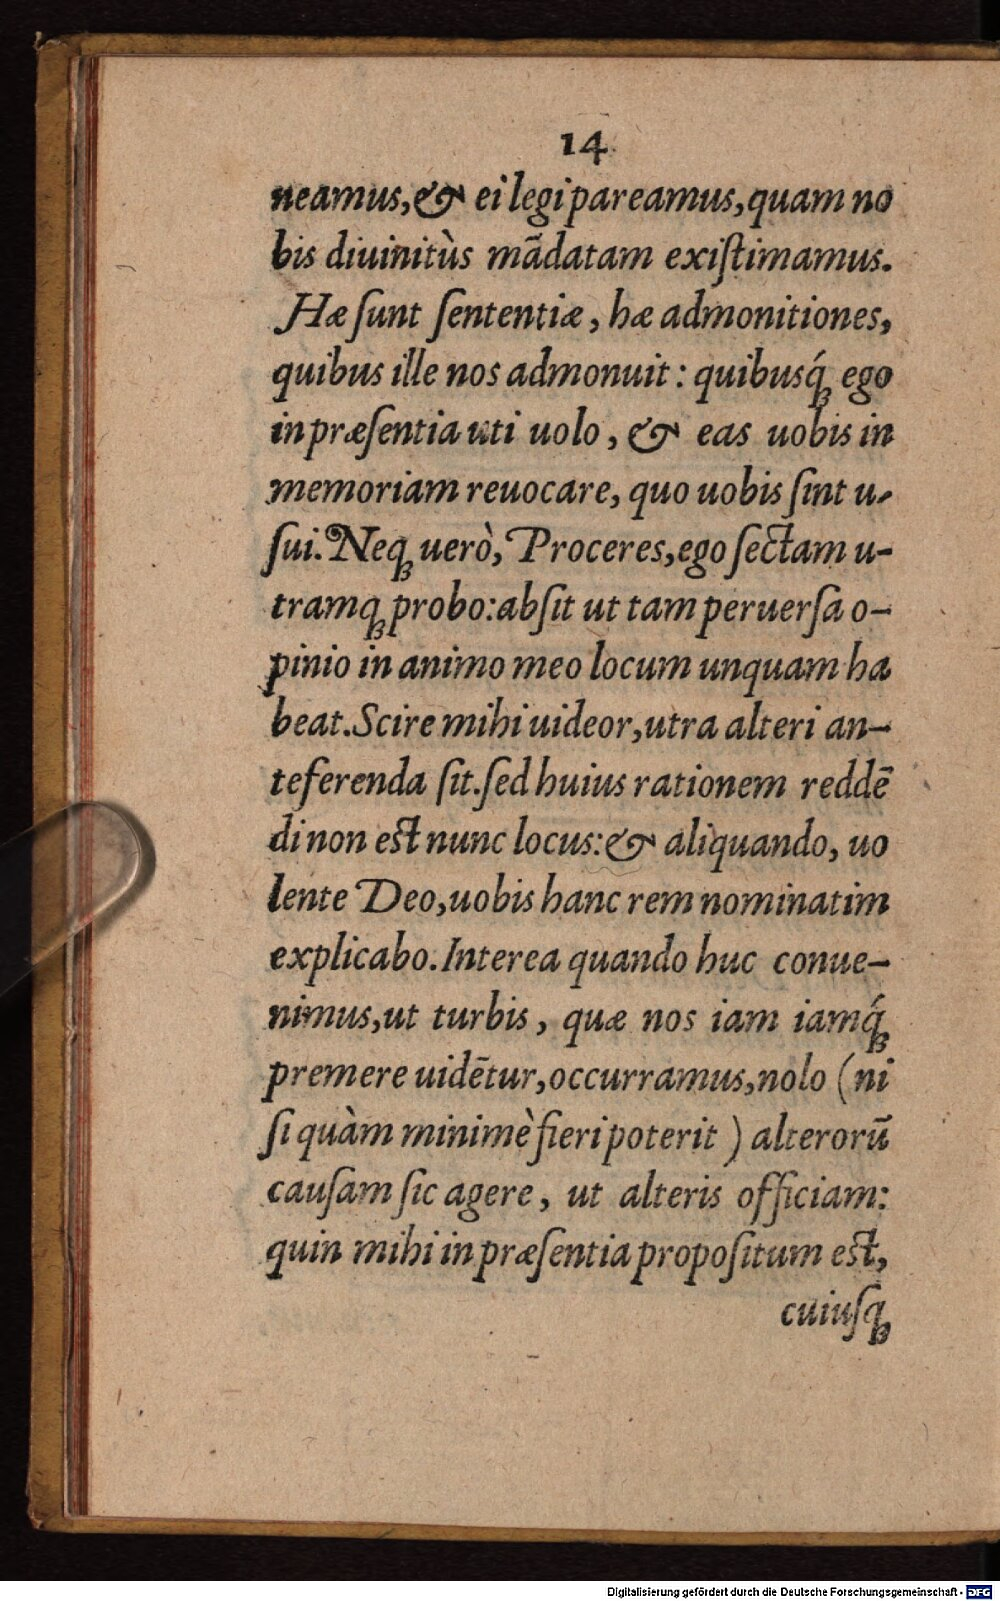 14
neamus,& ei legi pareamus,quam no
bis diuinitùs mādatam exiſtimamus.
Hæ ſunt ſententiæ, hæ admonitiones,
quibus ille nos admonuit: quibusq́ꝫ ego
in præſentia uti uolo, & eas uobis in
memoriam reuocare, quo uobis ſint u-
ſui. Neqꝫ uerò, Proceres,ego ſectam u-
tramqꝫ probo:abſit ut tam peruerſa o-
pinio in animo meo locum unquam ha
beat. Scire mihi uideor,utra alteri an-
teferenda ſit.ſed huius rationem reddē
di non eſt nunc locus:& aliquando, uo
lente Deo,uobis hanc rem nominatim
explicabo. Interea quando huc conue-
nimus,ut turbis, quæ nos iam iamq́ꝫ
premere uidētur,occurramus,nolo (ni
ſi quàm minimè fieri poterit) alterorū
cauſam ſic agere, ut alteris officiam:
quin mihi in præſentia propoſitum eſt,
cuiuſqꝫ
Digitalisierung gefördert durch die Deutsche Forschungsgemeinschaft - DFG